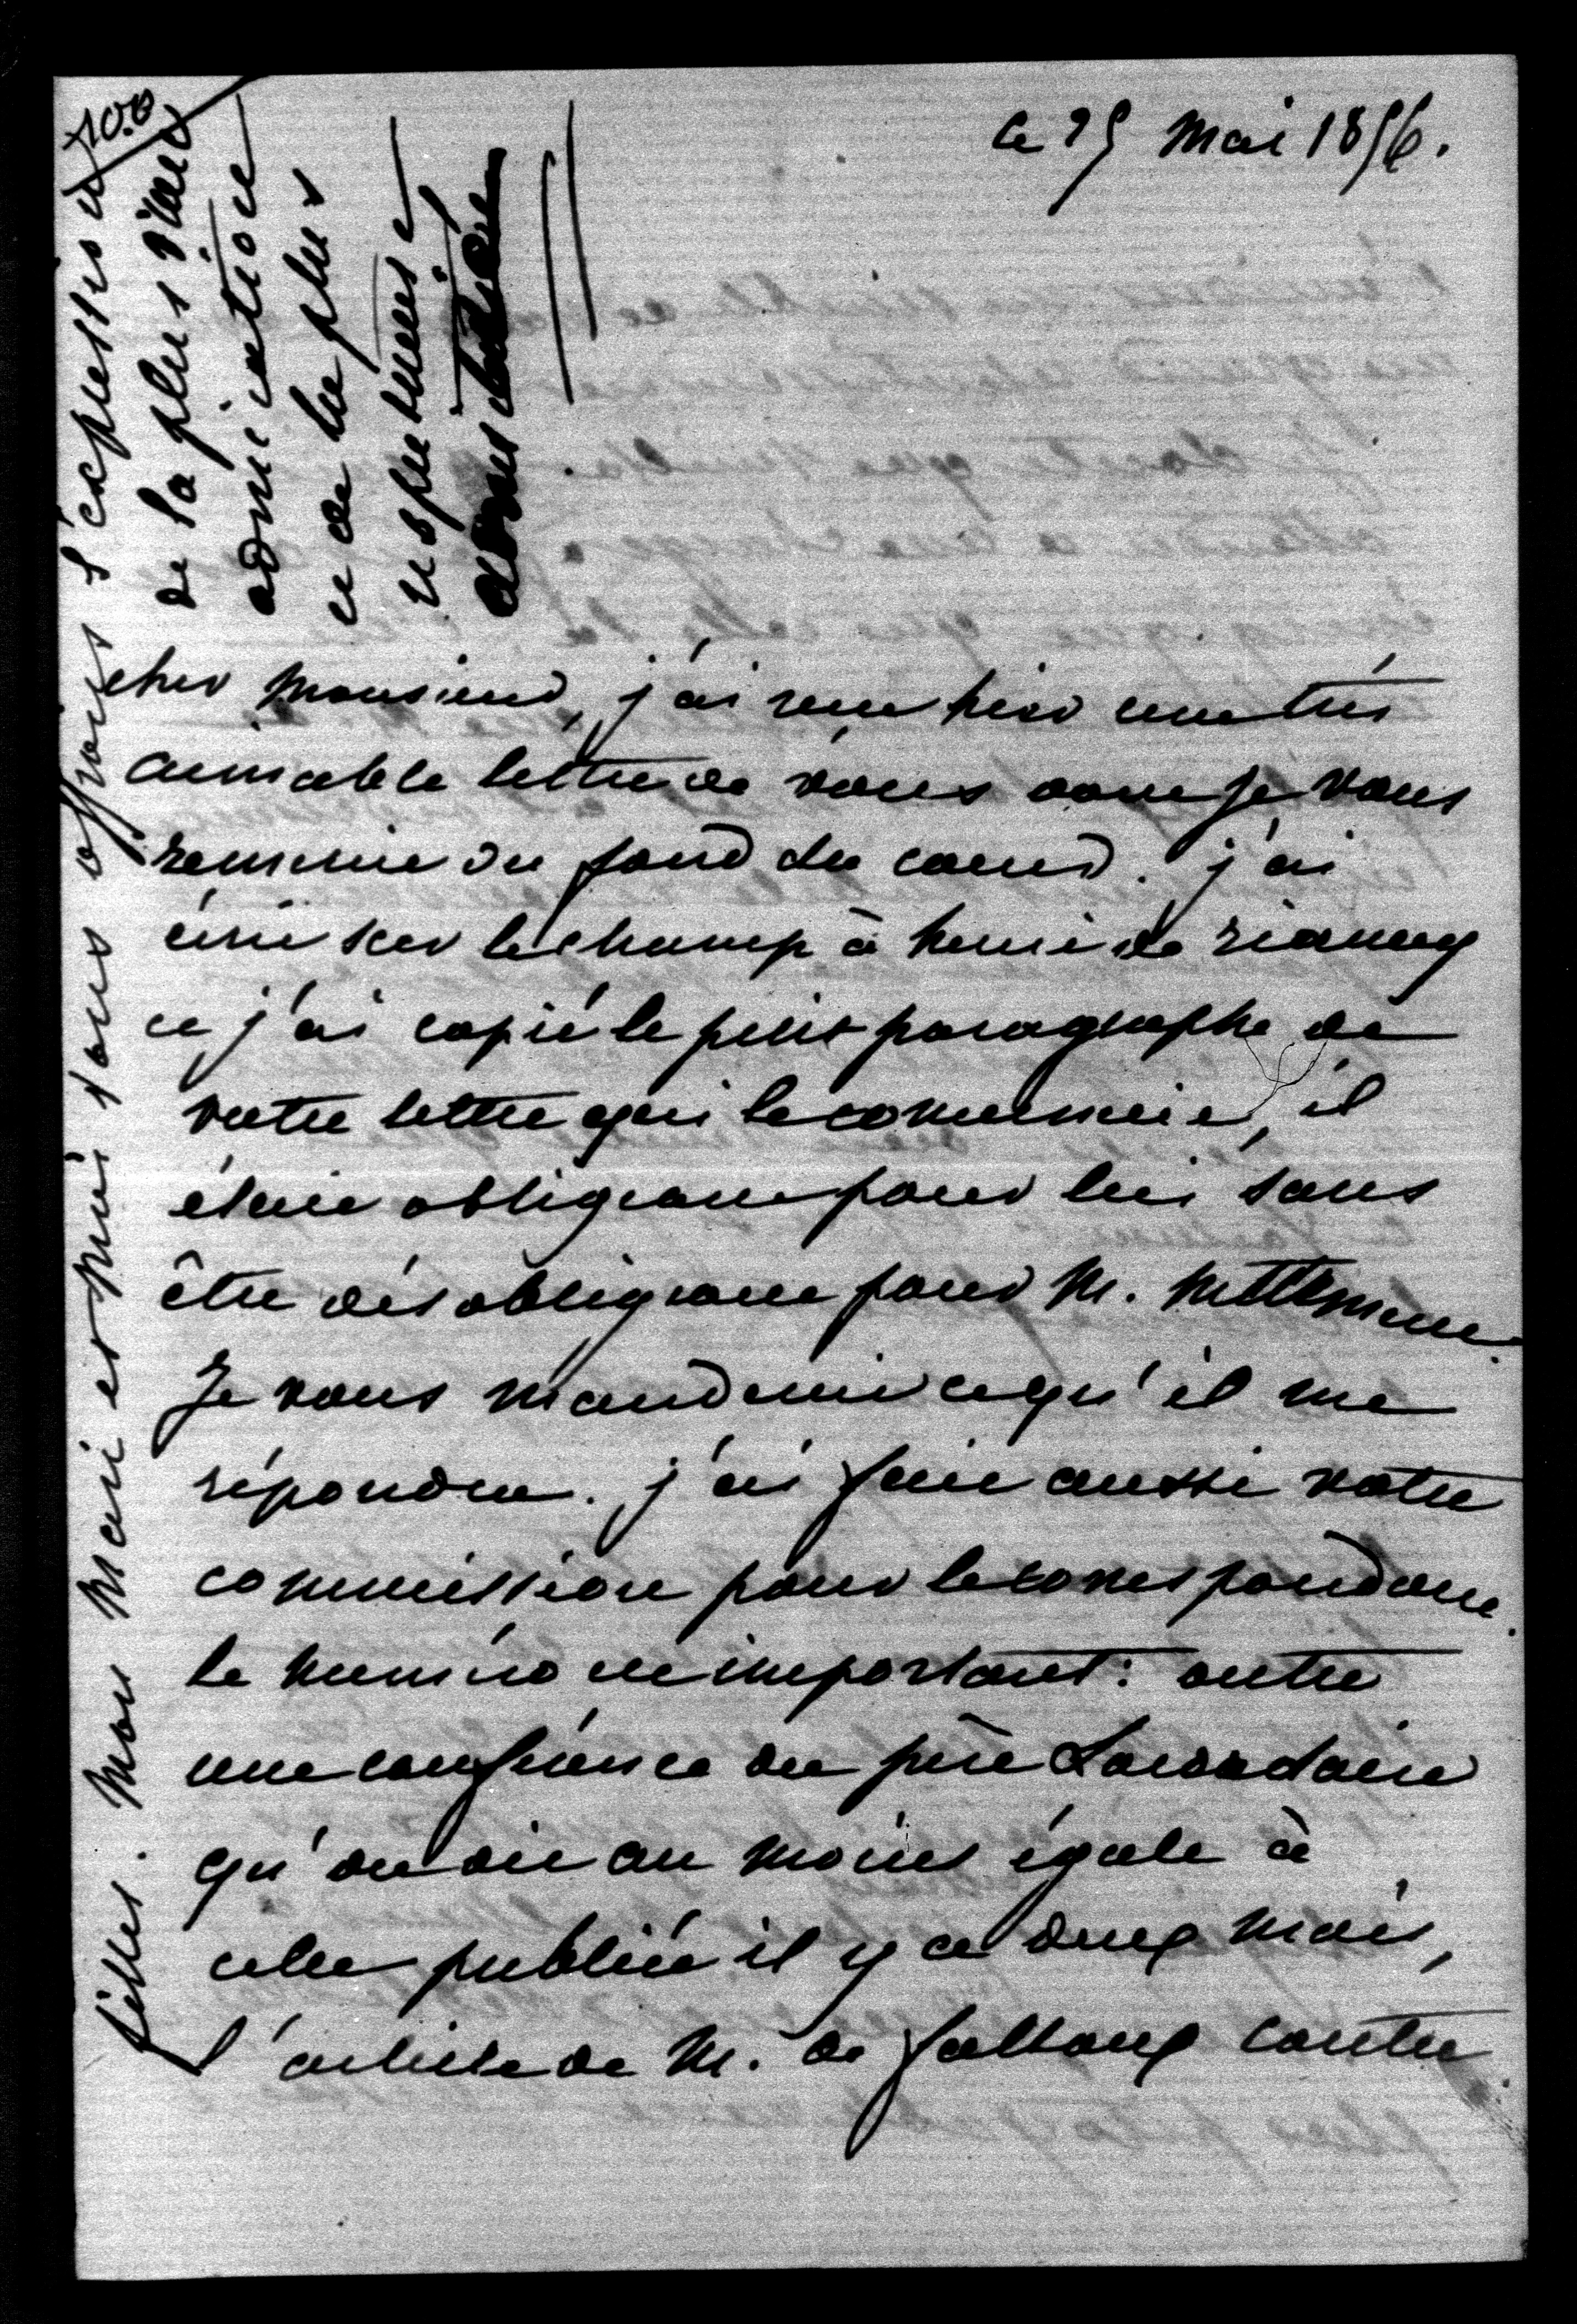 le 25 mai 1856.
cher monsieur, j'ai reçu hier une très
aimable lettre de vous dont je vous
remercie du fond du coeur. j'ai
écrit sur le champ à henri de riancey
et j'ai copié le petit paragraphe de
votre lettre qui le concernait, il
était obligeant pour lui sans
être désobligeant pour M. Nettement.
Je vous manderai ce qu'il me
répondra. j'ai fait aussi votre
commission pour le correspondant.
le numéro est important: outre
une conférence du père Lacordaire
qu'on dit au moins égale à
celle publiée il y a deux mois,
l'article de M. de falloux contre
filles. Mon mari et moi vous offrons l'expression
de la plus vive
admiration
et de la plus
respectueuse